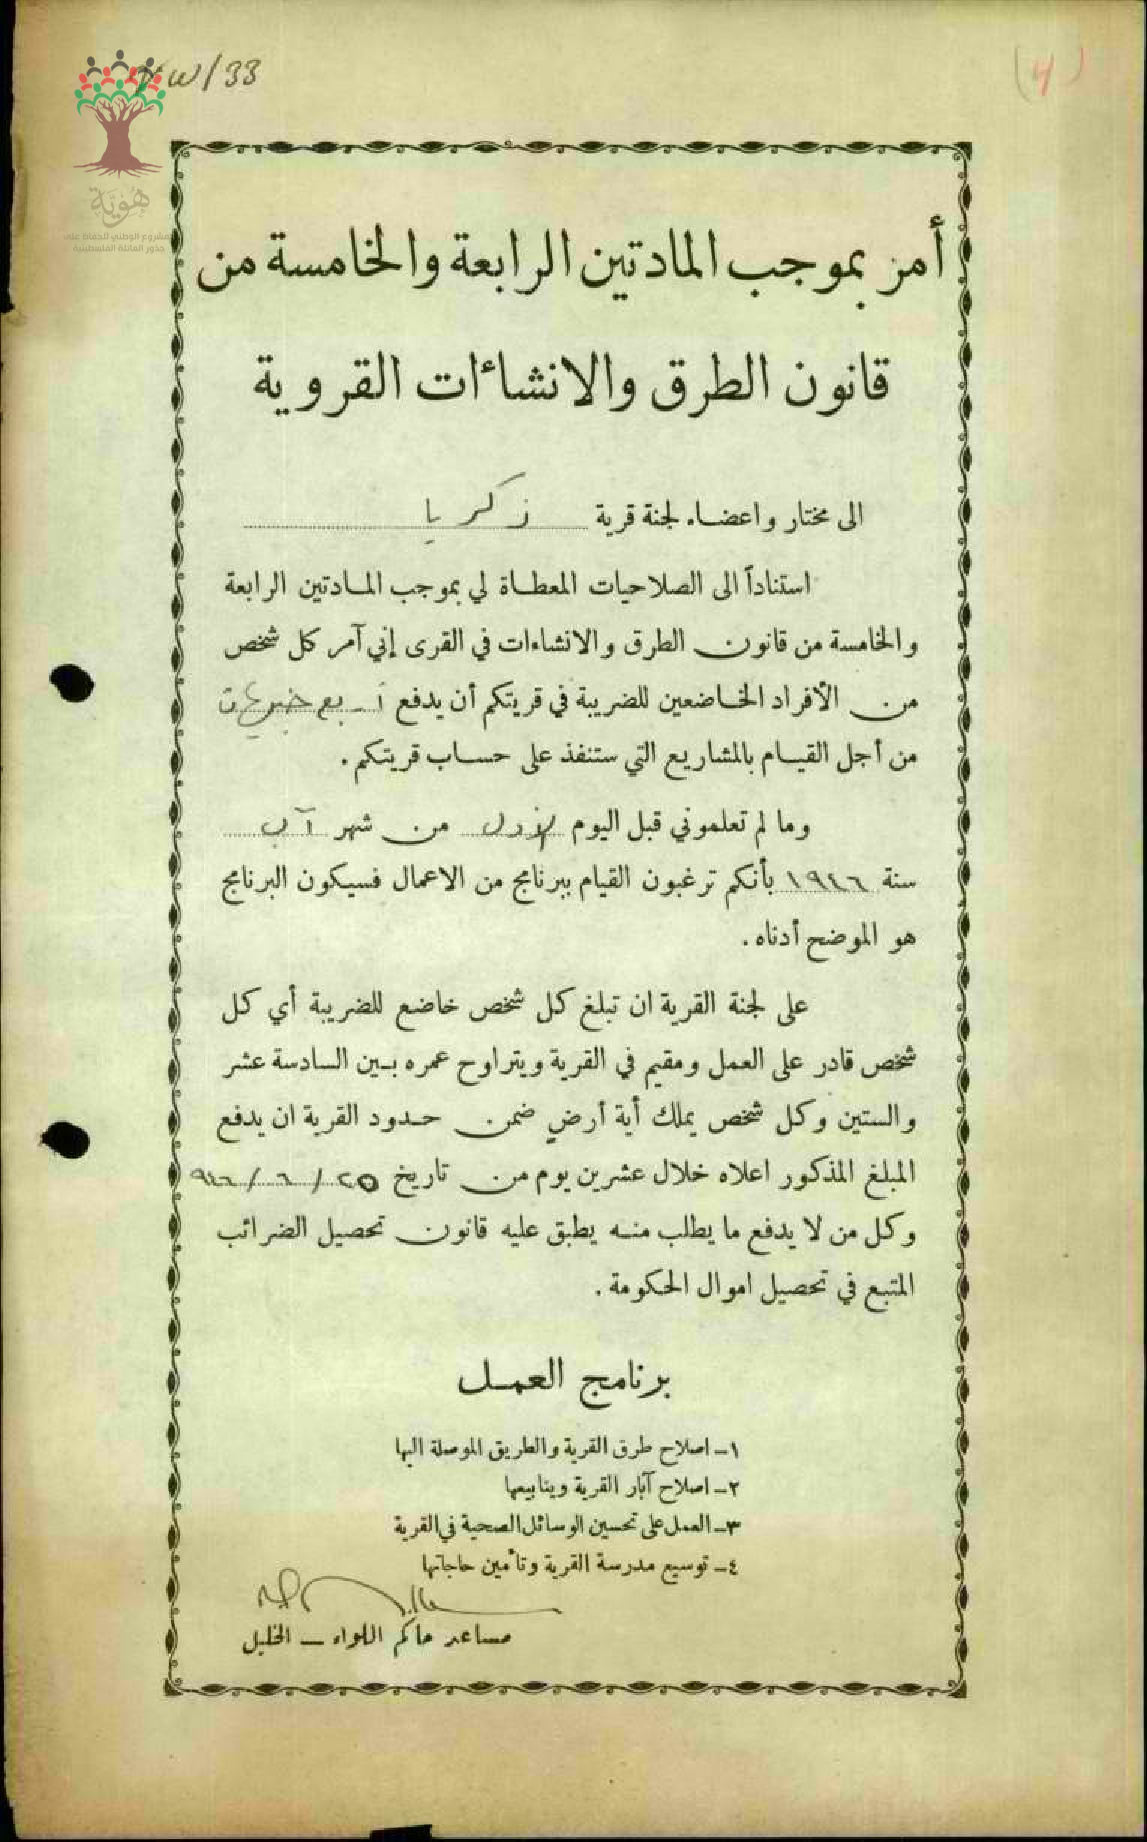 W/33
(4)
هوية
المشروع الوطني للحفاظ على
جذور العائلة الفلسطينية
أمر بموجب المادتين الرابعة والخامسة من
قانون الطرق والانشاءات القروية
الى مختار واعضاء لجنة قرية زكريا
استناداً الى الصلاحيات المعطاة لي بموجب المادتين الرابعة
والخامسة من قانون الطرق والانشاءات في القرى إني آمر كل شخص
من الأفراد الخاضعين للضريبة في قريتكم أن يدفع أربع جنيهات
من أجل القيام بالمشاريع التي ستنفذ على حساب قريتكم .
وما لم تعلموني قبل اليوم الأول من شهر آب
سنة ١٩٤٦ بأنكم ترغبون القيام ببرنامج من الاعمال فسيكون البرنامج
هو الموضح أدناه .
على لجنة القرية ان تبلغ كل شخص خاضع للضريبة أي كل
شخص قادر على العمل ومقيم في القرية ويتراوح عمره بين السادسة عشر
والستين وكل شخص يملك أية أرضٍ ضمن حدود القرية ان يدفع
المبلغ المذكور اعلاه خلال عشرين يوم من تاريخ ٢٥ / ٦ / ٩٤٦
وكل من لا يدفع ما يطلب منه يطبق عليه قانون تحصيل الضرائب
المتبع في تحصيل اموال الحكومة .
برنامج العمل
١ـ اصلاح طرق القرية والطريق الموصلة اليها
٢ـ اصلاح آبار القرية وينابيعها
٣ـ العمل على تحسين الوسائل الصحية في القرية
٤ـ توسيع مدرسة القرية وتأمين حاجاتها
مساعد حاكم اللواء ـ الخليل